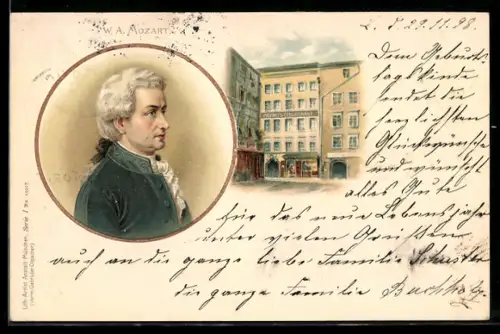 W. A. MOZART.
L. d 29.11.98.
Dem Geburts-
tagskinde
sendet die
herzlichsten
Glückwünsche
und wünscht
alles Gute
für das neue Lebensjahr
unter vielen Grüssen
auch an die ganze liebe Familie Schuster
die ganze Familie
Lith. Artist. Anstalt München
Serie I No.